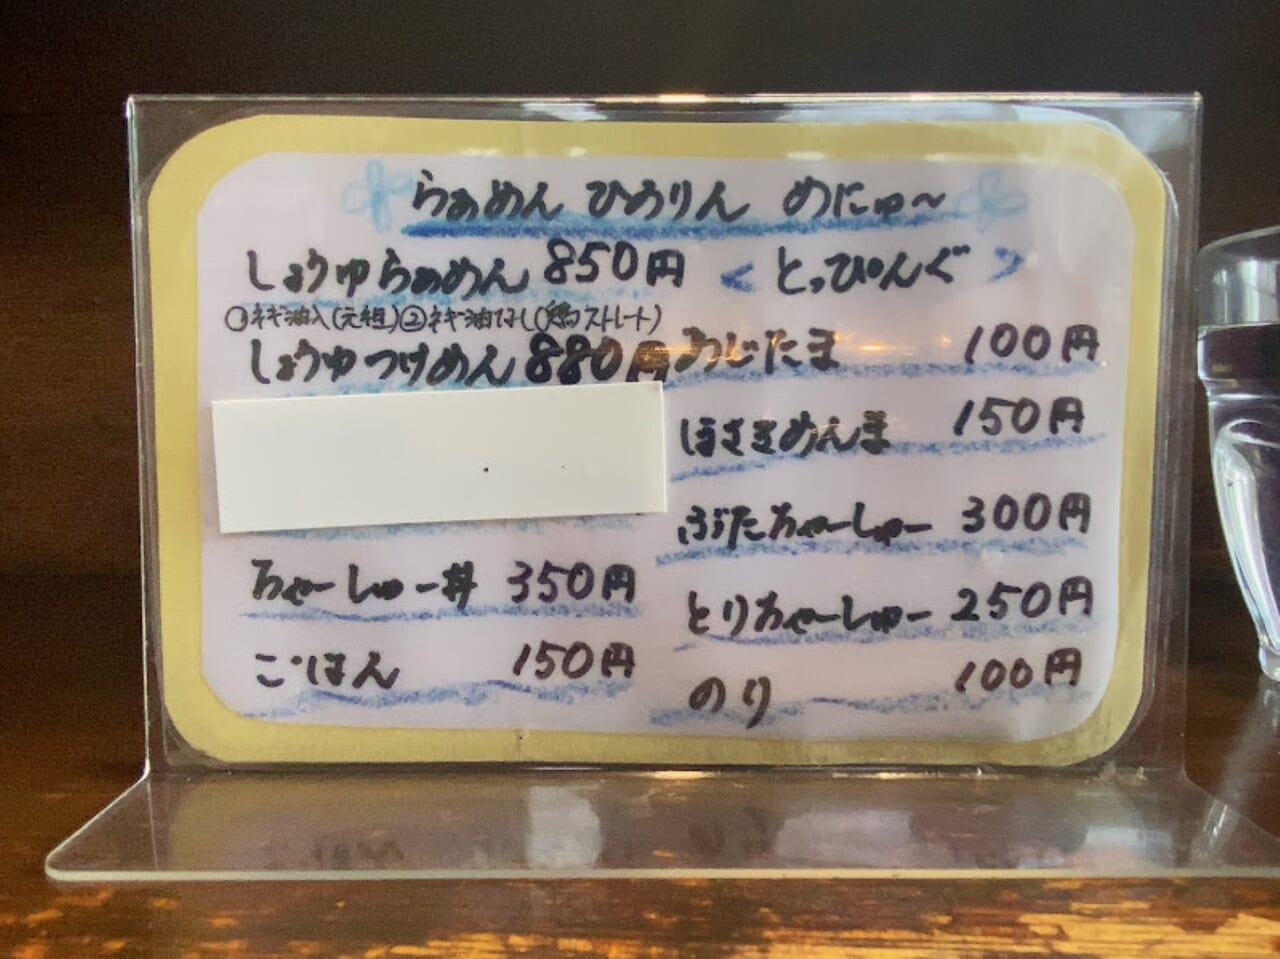 らぁめん ひめりん めにゅ〜
しょうゆらぁめん 850円
①ネギ油入(元祖)②ネギ油なし(鶏ストレート)
しょうゆつけめん 880円
ちゃーしゅー丼 350円
ごはん 150円
<とっぴんぐ>
あじたま 100円
ほさきめんま 150円
ぶたちゃーしゅー 300円
とりちゃーしゅー 250円
のり 100円